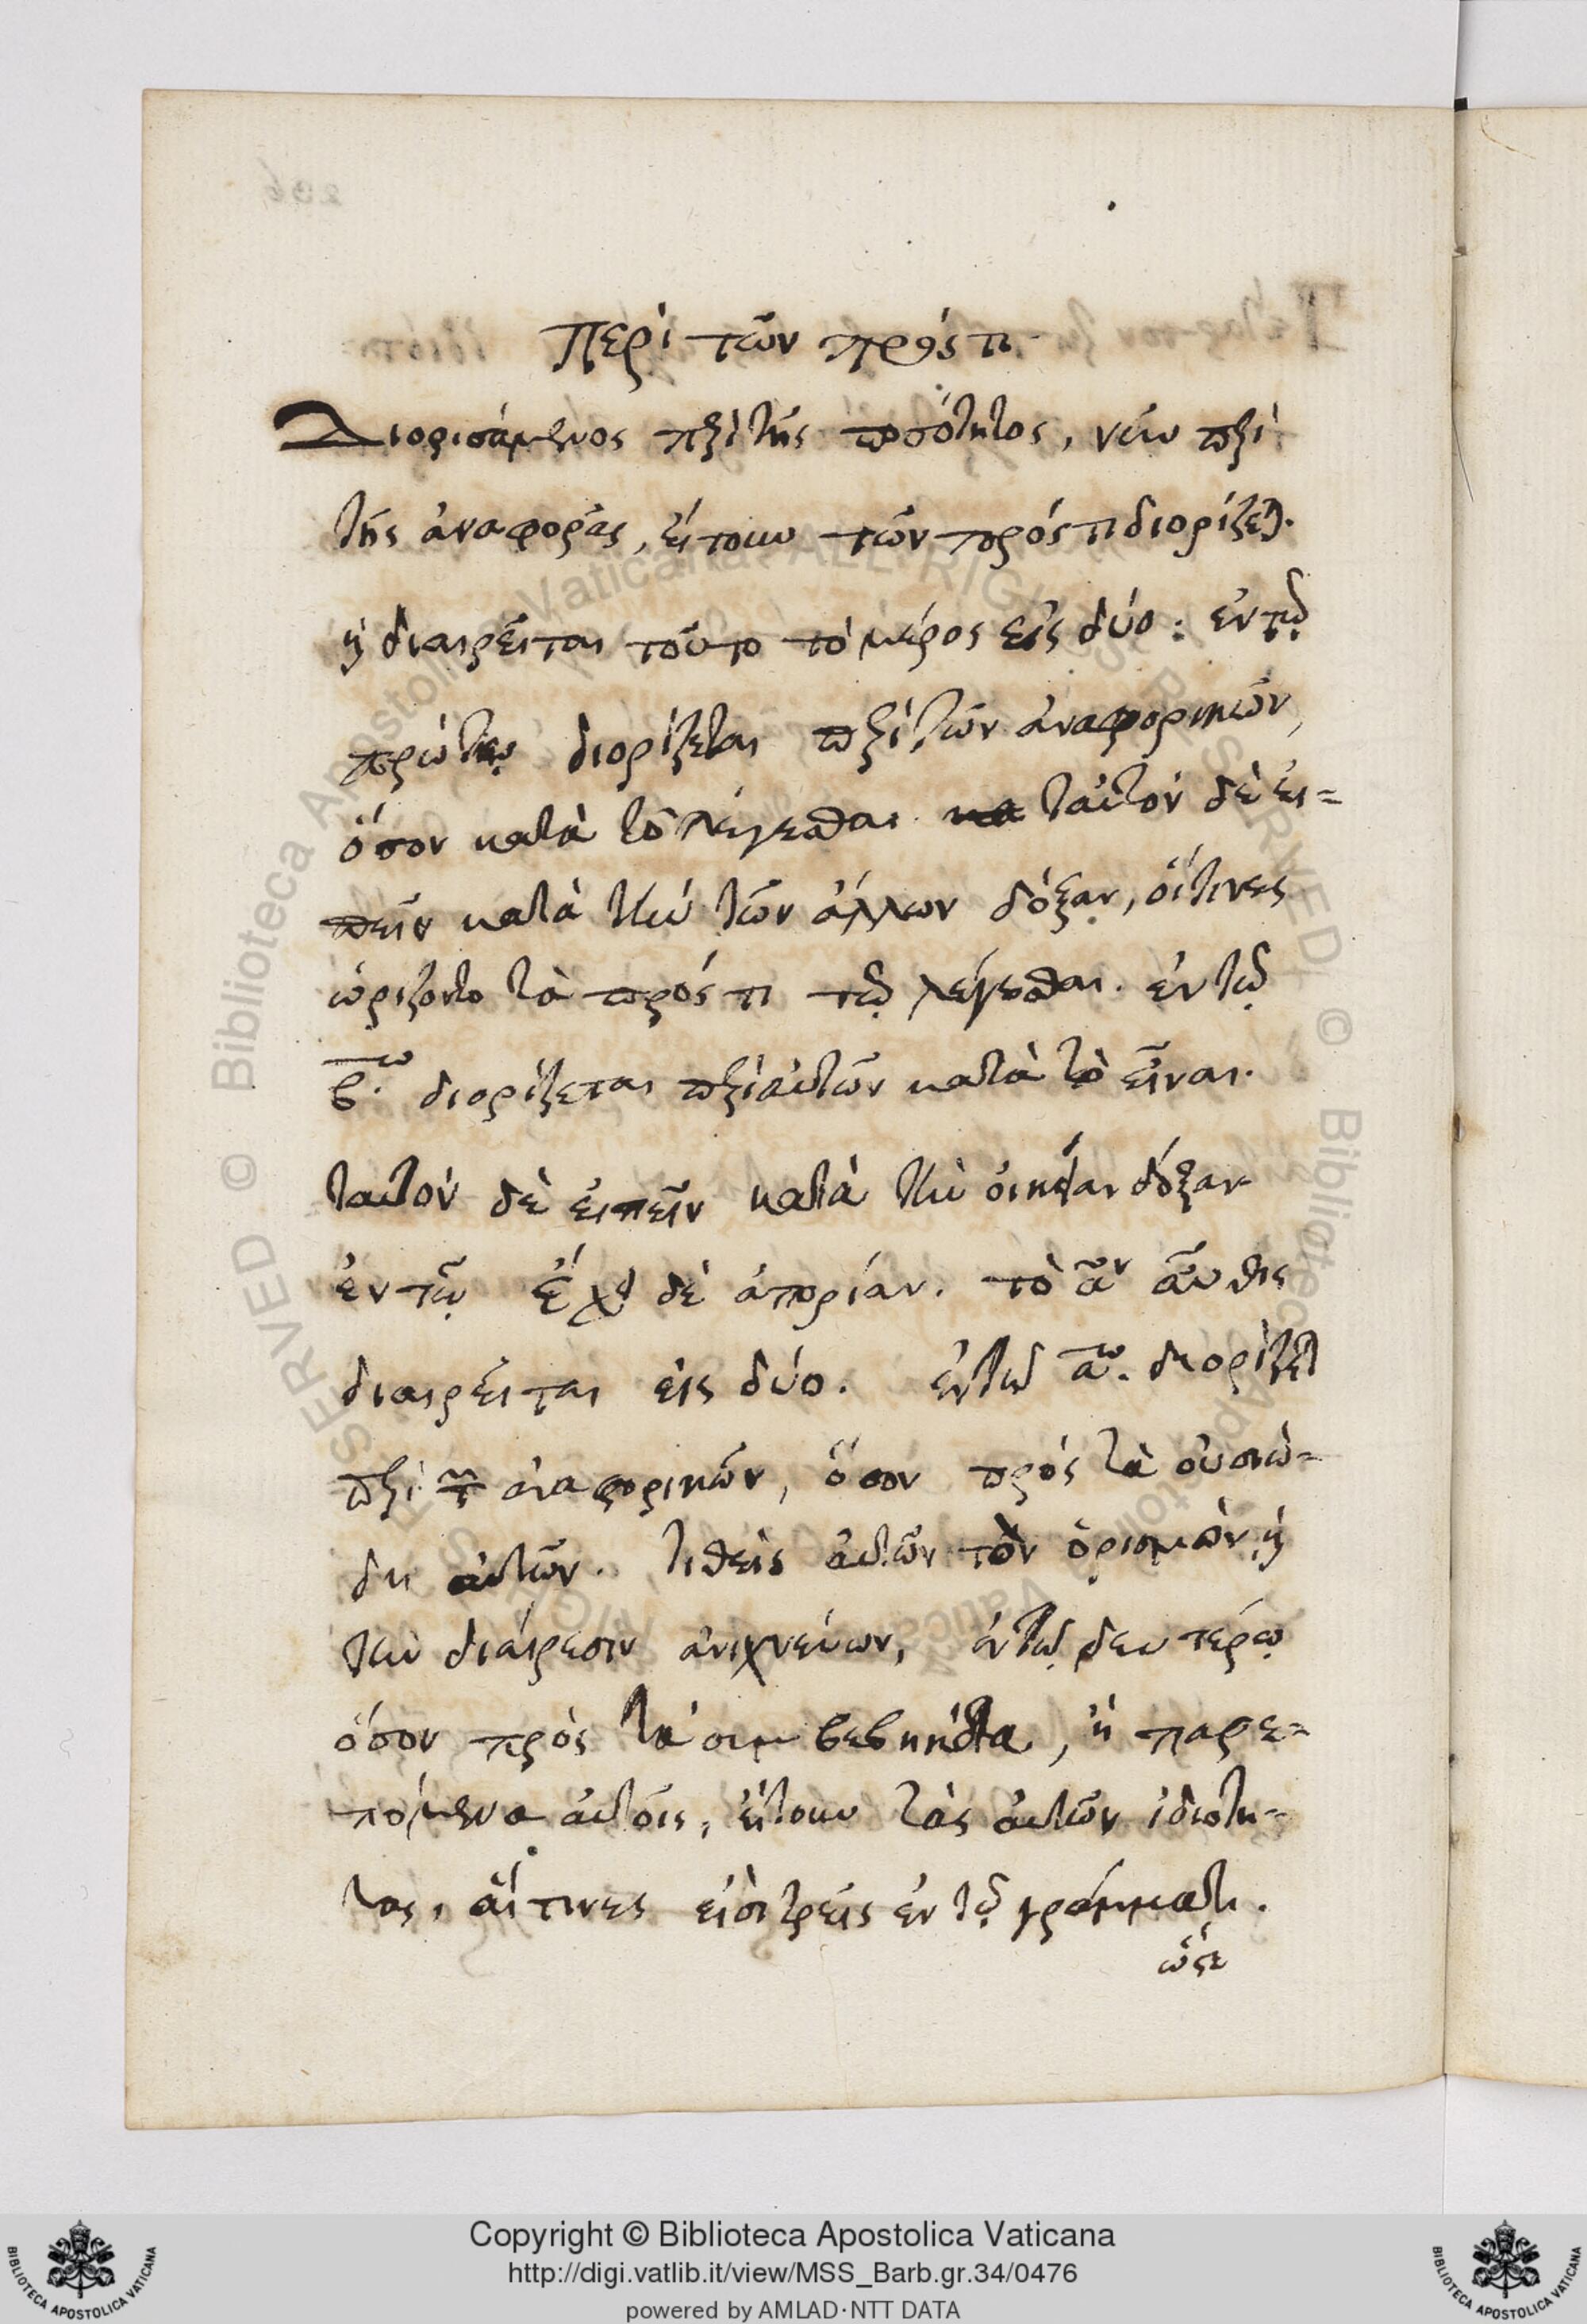 Περὶ τῶν πρός τι
Διορισάμενος περὶ τῆς ποσότητος, νῦν περὶ
τῆς ἀναφορᾶς, εἴτουν τῶν πρός τι διορίζεται.
καὶ διαιρεῖται τοῦτο τὸ μέρος εἰς δύο: ἐν τῷ
πρώτῳ διορίζεται περὶ τῶν ἀναφορικῶν,
ὅσον κατὰ τὸ λέγεσθαι. ταὐτὸν δὲ εἰ=
πεῖν κατὰ τὴν τῶν ἄλλων δόξαν, οἵτινες
ὡρίζοντο τὰ πρός τι τῷ λέγεσθαι. ἐν τῷ
β.ῳ διορίζεται περὶ αὐτῶν κατὰ τὸ εἶναι.
ταυτὸν δὲ εἰπεῖν κατὰ τὴν οἰκείαν δόξαν
ἐν τῷ ἔχει δὲ ἀπορίαν. τὸ αον αὖθις
διαιρεῖται εἰς δύο. ἐν τῷ αῳ. διορίζεται
περὶ τῶν ἀναφορικῶν, ὅσον πρὸς τὰ οὐσιώ=
δη αὐτῶν. τιθεὶς αὐτῶν τὸν ὁρισμὸν, καὶ
τὴν διαίρεσιν ἀνιχνεύων, ἐν τῷ δευτέρῳ
ὅσον πρὸς τὰ συμβεβηκότα, ἢ παρε=
πόμενα αὐτοῖς, ἤτουν τὰς αὐτῶν ἰδιότη=
τας, αἵτινες εἰσὶ τρεῖς ἐν τῷ γράμματι.
ὥστε
Copyright © Biblioteca Apostolica Vaticana
http://digi.vatlib.it/view/MSS_Barb.gr.34/0476
powered by AMLAD·NTT DATA